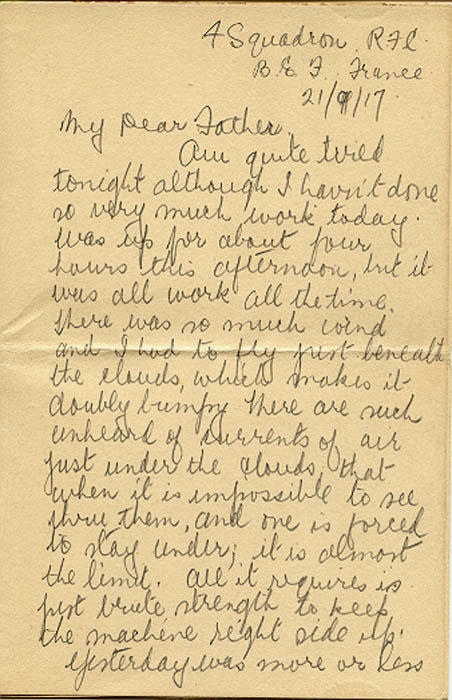 4 Squadron R.F.C.
B.E.F. France
21/9/17.
My Dear Father,
Am quite tired
tonight although I havn't done
so very much work today.
Was up for about four
hours this afternoon, but it
was all work all the time.
There was so much wind
and I had to fly just beneath
the clouds, which makes it
doubly bumpy. There are such
unheard of currents of air
just under the clouds, that
when it is impossible to see
thru them, and one is forced
to stay under; it is almost
the limit. All it requires is
just brute strength to keep
the machine right side up.
Yesterday was more or less